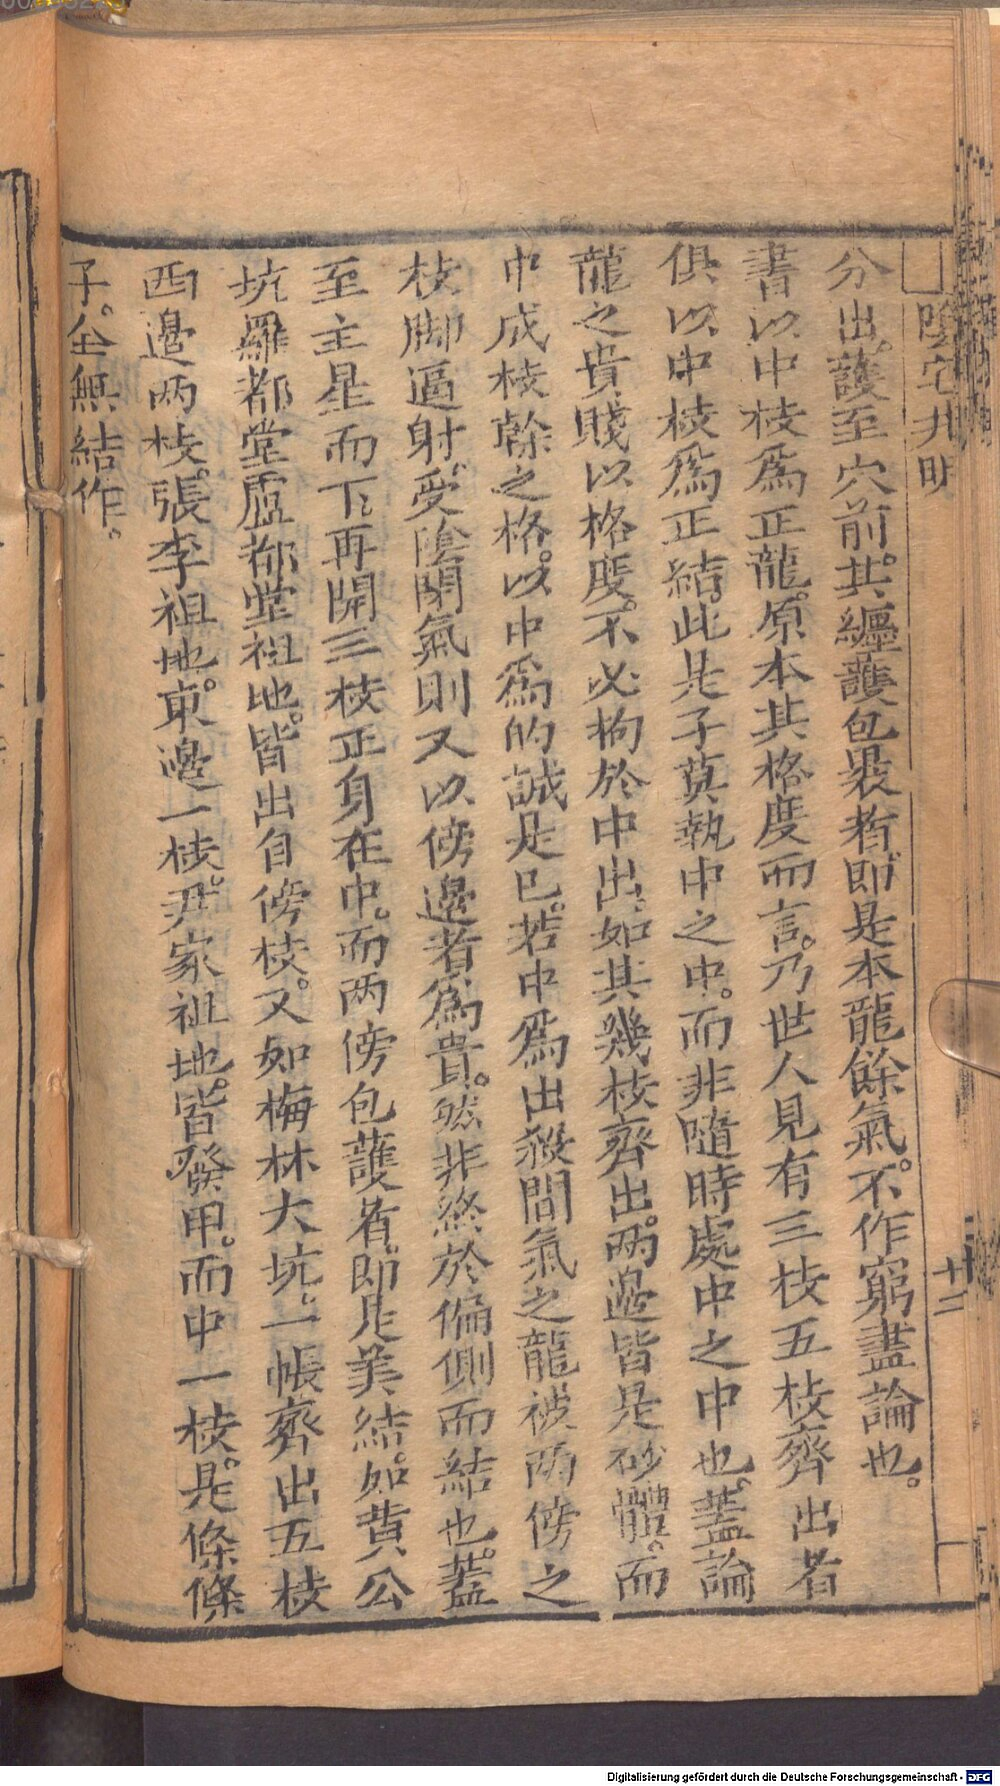 陰宅井明
十二
分出。護至穴前。其纏護包裹者。即是本龍餘氣。不作窮盡論也。
書以中枝爲正龍。原本其格度而言。乃世人見有三枝五枝齊出者
俱以中枝爲正結此是子莫執中之中。而非隨時處中之中也。蓋論
龍之貴賤以格度。不必拘於中出。如其幾枝齊出。兩邉皆是砂體。而
中成枝幹之格。以中爲的誠是已。若中爲出殺間氣之龍被兩傍之
枝脚逼射。受陰閉氣則又以傍邉者爲貴。然非終於偏側而結也。蓋
至主星而下。再開三枝正身在中。而两傍包護者。即是美結。如黄公
坑羅都堂盧都堂祖地。皆出自傍枝。又如梅林大坑。一帳齊出五枝
西邉两枝。張李祖地。東邉一枝。尹家祖地。皆發甲。而中一枝。是條條
子。全無結作。
Digitalisierung gefördert durch die Deutsche Forschungsgemeinschaft - DFG